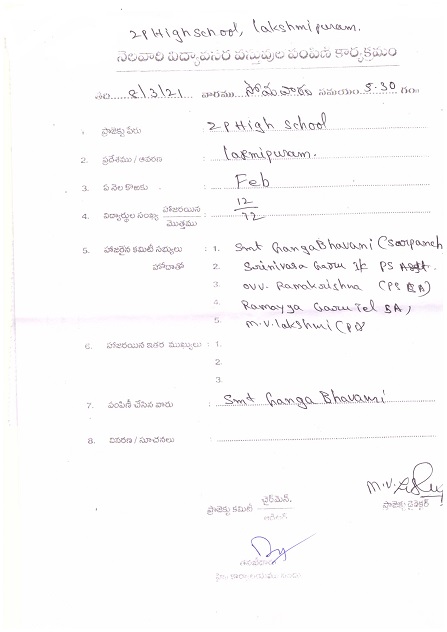 ZPHigh school, lakshmipuram.
నెలవారి విద్యావసర వస్తువుల పంపిణీ కార్యక్రమం
తేది 8/3/21 వారము సోమవారం సమయం 5.30 గం
1. ప్రాజెక్టు పేరు : ZPHigh School
2. ప్రదేశము / ఆవరణ : laxmipuram.
3. ఏ నెల కొఱకు : Feb
4. విద్యార్థుల సంఖ్య హాజరయిన / మొత్తము : 12 / 12
5. హాజరైన కమిటీ సభ్యులు : 1. Smt GangaBhavani (Sarpanch
2. Srinivasa Garu PS
3. Ramakrishna (PS SA)
4. Ramayya Garu Tel SA)
5. M.V. lakshmi (
6. హాజరయిన ఇతర ముఖ్యులు : 1.
2.
3.
7. పంపిణీ చేసిన వారు : Smt Ganga Bhavani
8. వివరణ / సూచనలు :
ప్రాజెక్టు కమిటీ ఛైర్మెన్,
ప్రాజెక్టు డైరెక్టర్